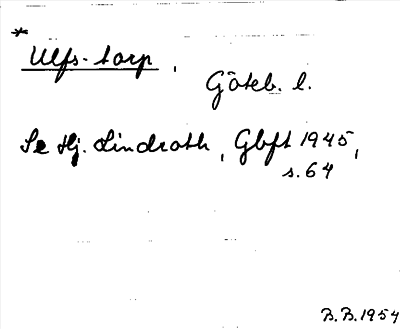 * Ulfs-torp,
Göteb. l.
Se Hj. Lindroth, Gbft 1945,
s. 64
B.B. 1954